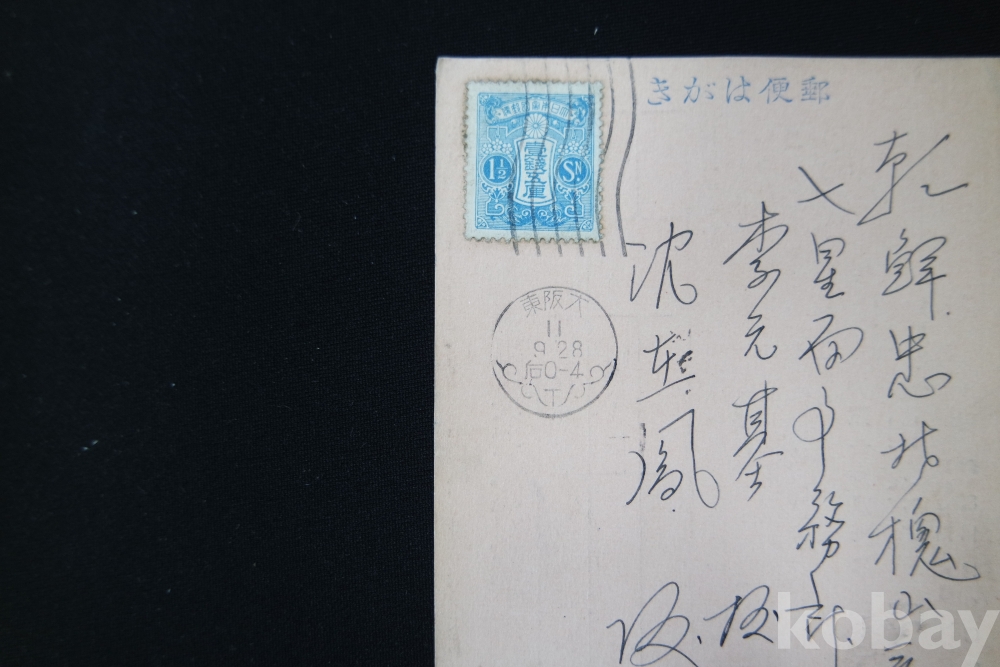 郵便はがき
朝鮮忠北槐山郡
七星面事務所
李元基
沈
鳳
殿
殿
大日本帝国郵便
壹錢五厘
1½
SN.
大阪東
11
9 28
后0-4
kobay